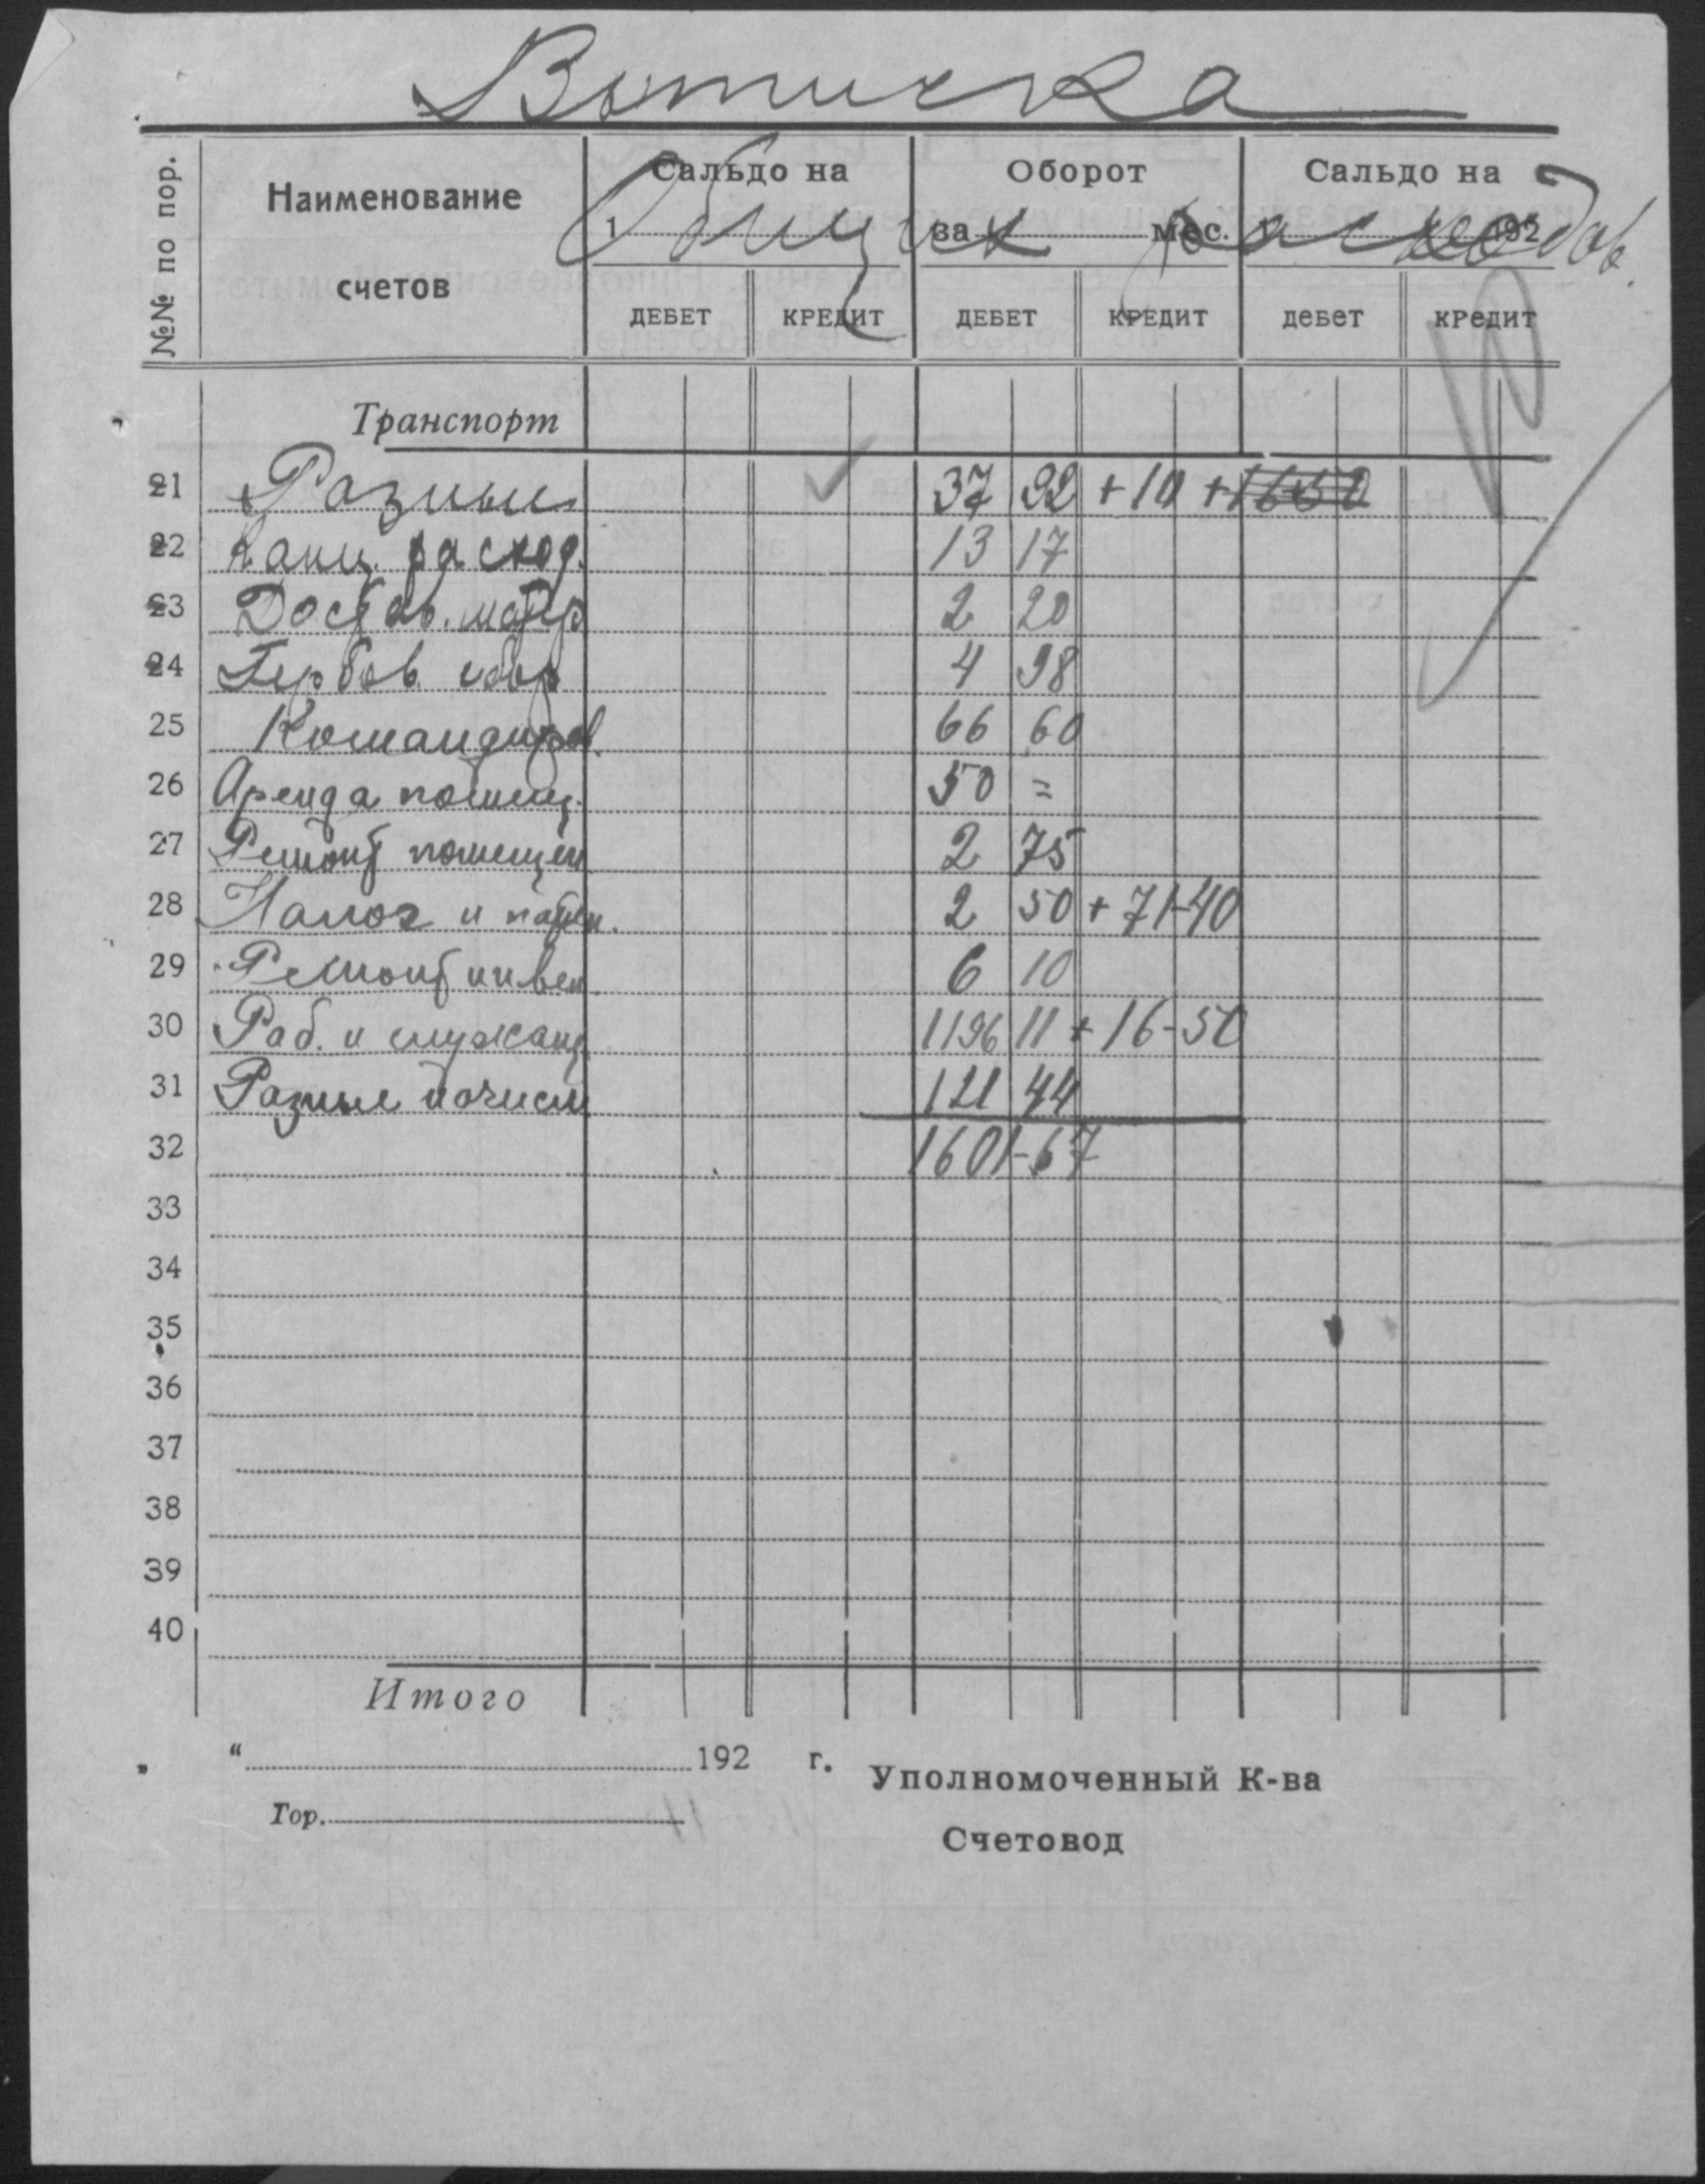 Выписка
Общих расходов.
№№ по пор.
Наименование счетов
Сальдо на
1
Оборот
за мес.
Сальдо на
1 192
ДЕБЕТ КРЕДИТ ДЕБЕТ КРЕДИТ ДЕБЕТ КРЕДИТ
Транспорт
21 Разные 37 92 + 10 + 1650
22 Канц. расход. 13 17
23 Достав. матер 2 20
24 Гербов. сбор 4 98
25 Командиров. 66 60
26 Аренда помещ. 50 =
27 Ремонт помещен 2 75
28 Налог и патен. 2 50 + 71-40
29 Ремонт инвен. 6 10
30 Раб. и служащ 1196 11 + 16-50
31 Разные начисл 121 44
32 1601-67
33
34
35
36
37
38
39
40
Итого
“ 192 г.
Уполномоченный К-ва
Гор.
Счетовод